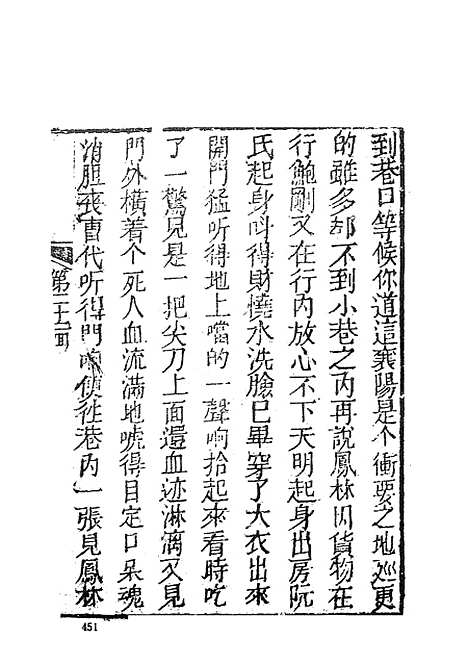 到巷口等候你道這襄陽是个衝要之地廵更
的雖多却不到小巷之内再說鳳林因貨物在
行鮑剛又在行内放心不下天明起身出房阮
氏起身呌得財燒水洗臉已畢穿了大衣出來
開門猛听得地上噹的一聲响拾起來看時吃
了一驚見是一把尖刀上面還血迹淋漓又見
門外橫着个死人血流滿地唬得目定口呆魂
消胆喪曹代听得門响便徃巷内一張見鳳林
451